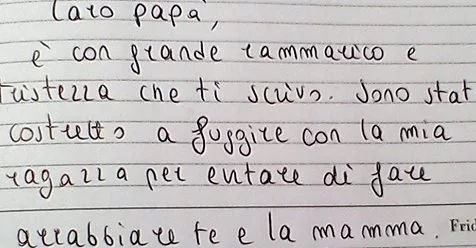 Caro papà,
è con grande rammarico e
tristezza che ti scrivo. Sono stat
costretto a fuggire con la mia
ragazza per entare di fare
arrabbiare te e la mamma. Frid